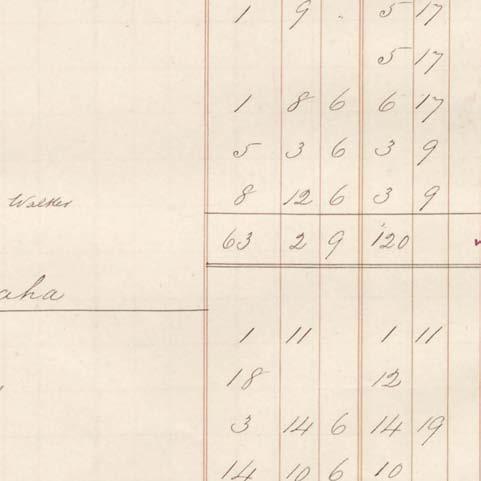 1 9 . 5 17
5 17
1 8 6 6 17
5 3 6 3 9
Walker 8 12 6 3 9
63 2 9 120
aha
1 11 1 11
18 12
3 14 6 14 19
14 10 6 10